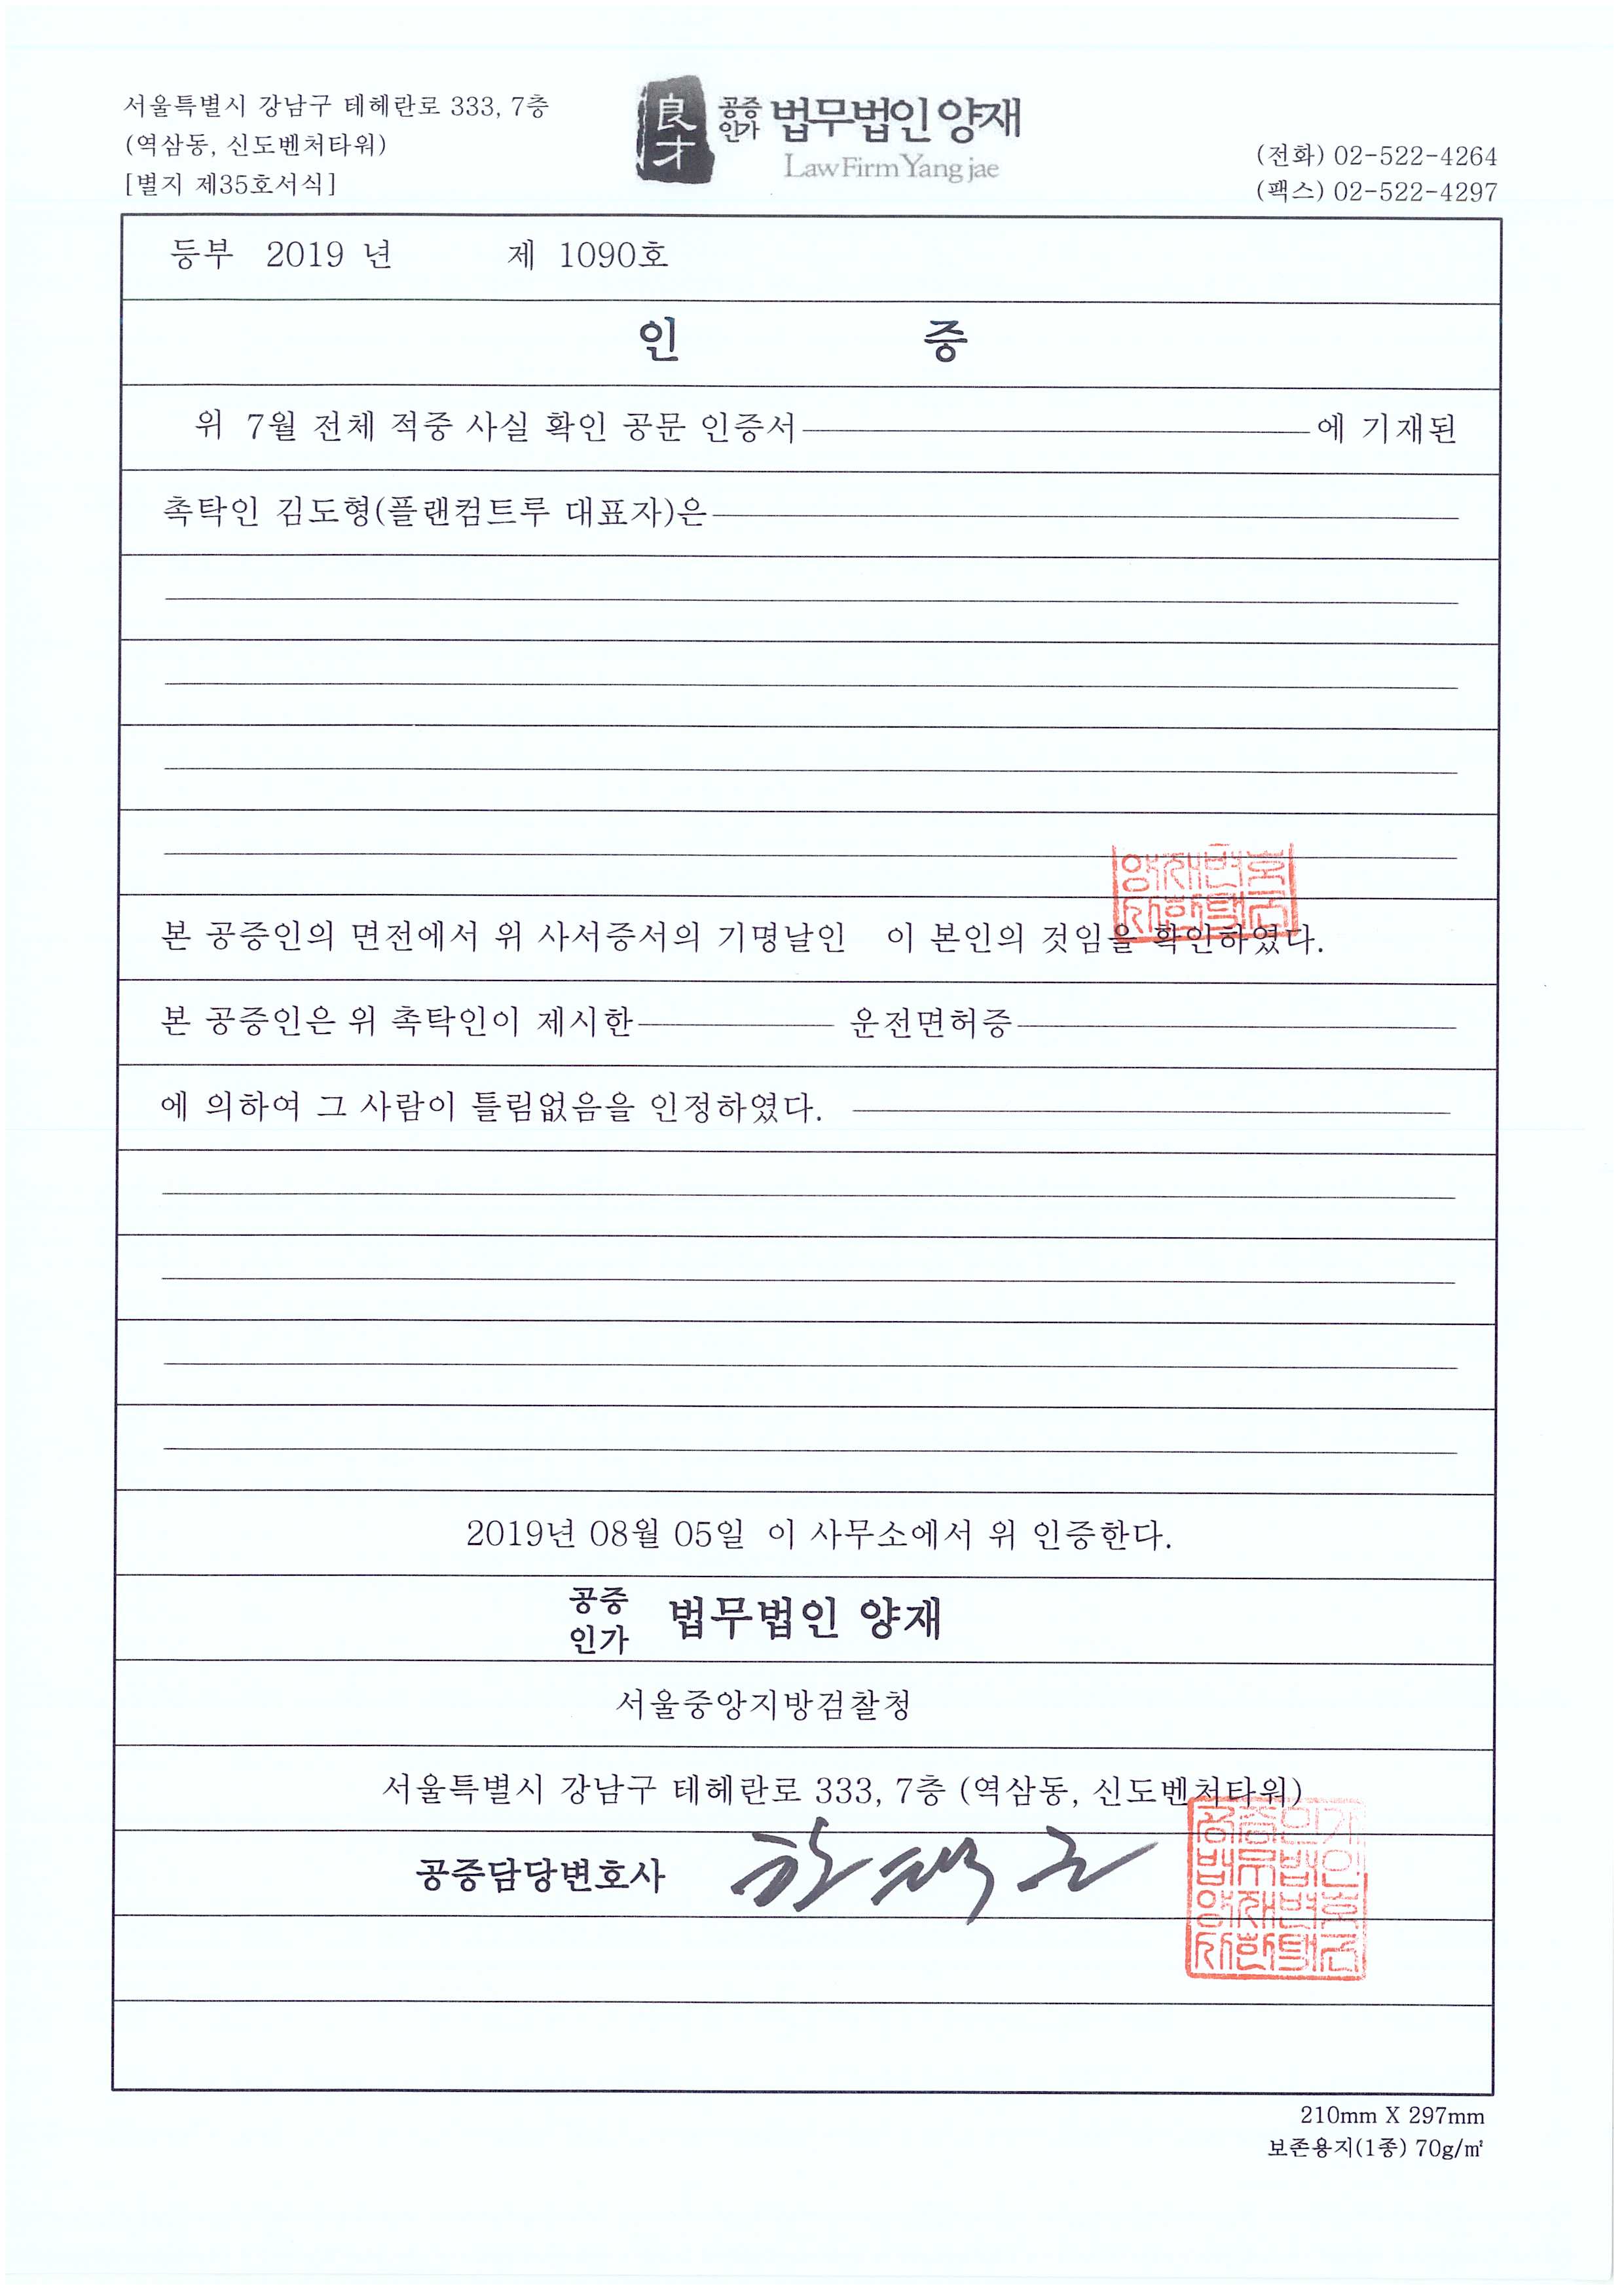 서울특별시 강남구 테헤란로 333, 7층
(역삼동, 신도벤처타워)
[별지 제35호서식]
良才
공증인가 법무법인 양재
Law Firm Yang jae
(전화) 02-522-4264
(팩스) 02-522-4297
등부 2019 년 제 1090호
인 증
위 7월 전체 적중 사실 확인 공문 인증서 에 기재된
촉탁인 김도형(플랜컴트루 대표자)은
양재변호
사한택근
본 공증인의 면전에서 위 사서증서의 기명날인 이 본인의 것임을 확인하였다.
본 공증인은 위 촉탁인이 제시한 운전면허증
에 의하여 그 사람이 틀림없음을 인정하였다.
2019년 08월 05일 이 사무소에서 위 인증한다.
공증인가 법무법인 양재
서울중앙지방검찰청
서울특별시 강남구 테헤란로 333, 7층 (역삼동, 신도벤처타워)
공증담당변호사 한택근
공증인가
법무법인
양재변호
사한택근
210mm X 297mm
보존용지(1종) 70g/㎡